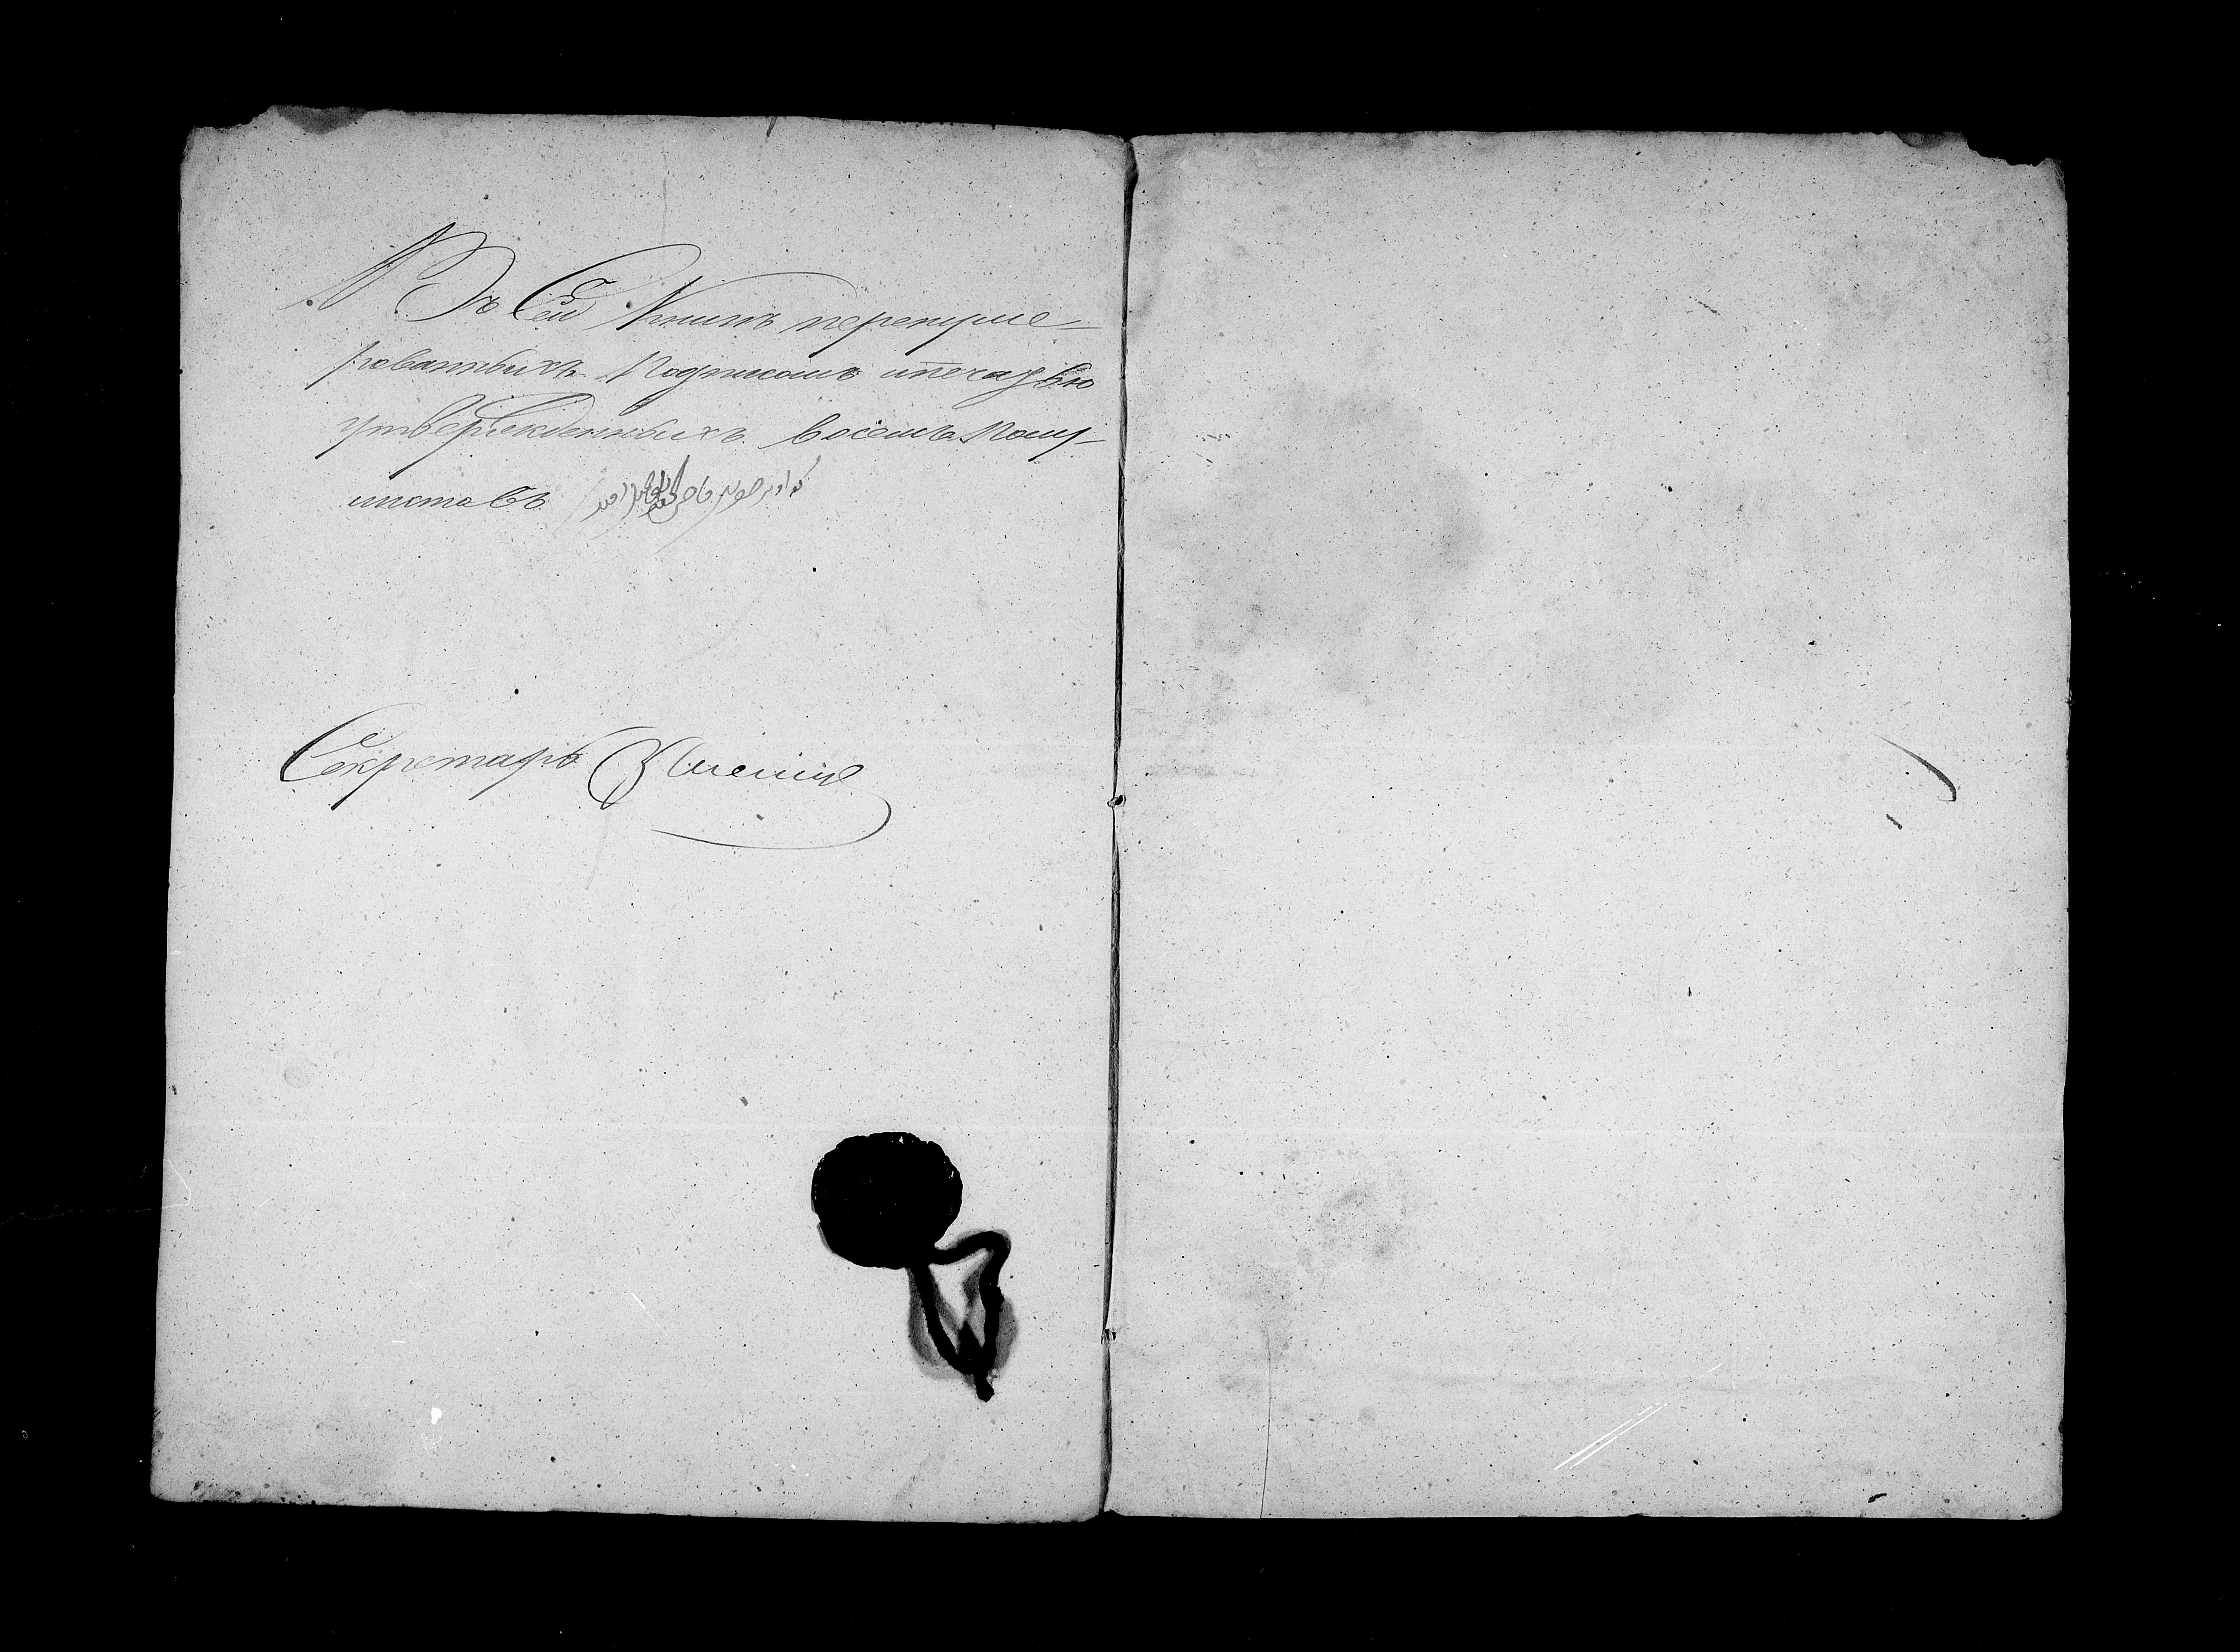 Въ Сей Книгѣ перенуме-
рованныхъ Подписомъ и печатью
утвержденныхъ восемь Полу-
листовъ
Секретарь